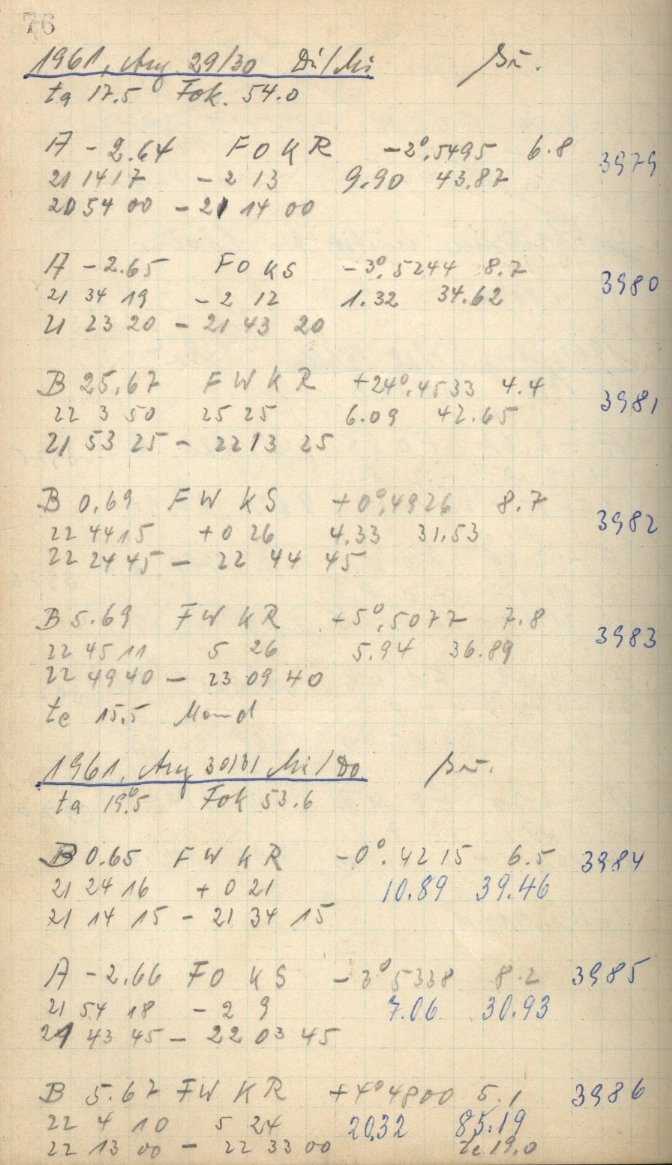 76
1961, Aug 29/30 Di/Mi Bü.
ta 17.5 Fok. 54.0
A -2.64 FOKR -2°.5495 6.8 3979
21 14 17 -2 13 9.90 43.87
20 54 00 - 21 14 00
A -2.65 FOKS -3°.5244 8.7 3980
21 34 19 -2 12 1.32 34.62
21 23 20 - 21 43 20
B 25.67 FWKR +24°.4533 4.4 3981
22 3 50 25 25 6.09 42.65
21 53 25 - 22 13 25
B 0.69 FWKS +0°.4926 8.7 3982
22 44 15 +0 26 4.33 31.53
22 24 45 - 22 44 45
B 5.69 FWKR +5°.5077 7.8 3983
22 45 11 5 26 5.94 36.89
22 49 40 - 23 09 40
te 15.5 Mond
1961, Aug 30/31 Mi/Do
ta 19°.5 Fok 53.6
B 0.65 FWKR -0°.4215 6.5 3984
21 24 16 +0 21 10.89 39.46
21 14 15 - 21 34 15
A -2.66 FOKS -3°5338 8.2 3985
21 54 18 -2 9 7.06 30.93
21 43 45 - 22 03 45
B 5.67 FWKR +4°4800 5.1 3986
22 4 10 5 24 20.32 85.19
22 13 00 - 22 33 00 te 19.0